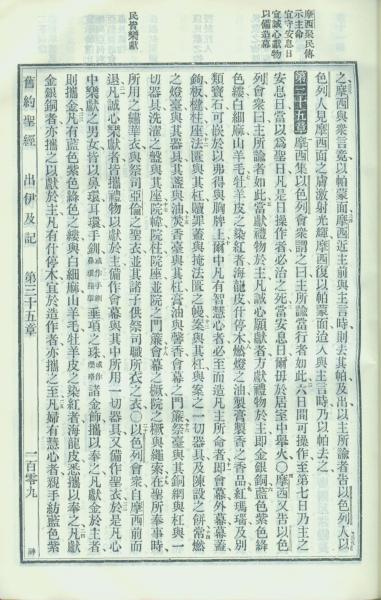 摩西聚民傳
示主命
宜守安息日
宜誠心獻物
以備造幕
民賫樂獻
之摩西與衆言竟以帕蒙面摩西近主前與主言時則去其帕及出以主所諭者告以色列人以
色列人見摩西面之膚激射光輝摩西復以帕蒙面迨入與主言時乃以帕去之
第三十五章 摩西集以色列會衆謂之曰主所諭當行者如此六日間可操作至第七日乃主之
安息日當以爲聖日凡是日操作者必治之死當安息日爾毋於居室中舉火○摩西又告以色
列會衆曰主所諭者如此當獻禮物於主凡誠心願獻者方獻禮物於主卽金銀銅藍色紫色絳
色縷白細麻山羊毛牡羊皮之染紅者海龍皮什停木燃燈之油製膏製香之香品紅瑪瑙及別
類寶石可嵌於以弗得與胸牌上爾中凡有智慧心者必至而造凡主所命者卽會幕外幕幕蓋
鉤板楗柱座法匱與其杠贖罪蓋與掩法匱之幔案與其杠與案之一切器具及陳設之餅常燃
之燈臺與其器具其盞與油焚香臺與其杠膏油與馨香會幕之門簾祭臺與其銅網與杠與一
切器具洗濯之盤與其座院帷院柱院座並院之門簾會幕之橛院之橛與繩索在聖所奉事時
所用之繡華衣與祭司亞倫之聖衣並其諸子供祭司職所衣之衣○以色列會衆自摩西前而
退凡誠心樂獻者皆攜禮物以獻於主備作會幕與其中所用一切器具又備作聖衣於是凡心
中樂獻之男女皆以鼻環耳環手釧或作手釧鼻環指環垂項之珠或作瓔珞諸金飾攜以奉之凡獻金於主者
則攜金凡有藍色紫色絳色之縷與白細麻山羊毛牡羊皮之染紅者海龍皮悉攜以奉之凡獻
金銀銅者亦攜之以獻於主凡有什停木宜於造作者亦攜之至凡婦有慧心者親手紡藍色紫
舊約聖經 出伊及記 第三十五章 一百零九